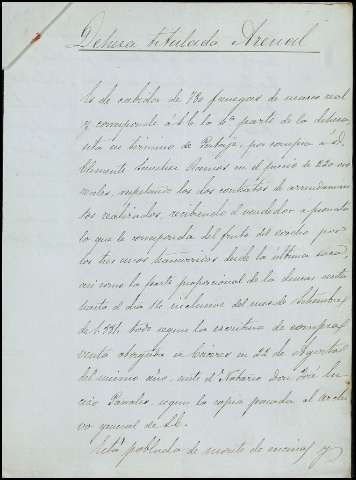 Dehesa titulada Arenal
Es de cabida de 730 fanegas de marco real
y corresponde á S.E. la 4ª parte de la dehesa
sita en término de por compra á D.
Clemente Sanchez Ramos en el precio de 220 mil
reales, respetando los dos contratos de arrendamien
tos realizados, recibiendo el vendedor á prorrata
lo que le corresponda del fruto del corcho por
los tres años transcurridos desde la última saca,
así como la parte proporcional de la demas renta
hasta el dia 14 inclusive del mes de Setiembre
de 1.881. todo segun la escritura de compra
venta otorgada en Cáceres en 22 de Agosto
del mismo año, ante el Notario Don José
segun la copia pasada al archi
vo general de S.E.
Está poblada de monte de encinas y